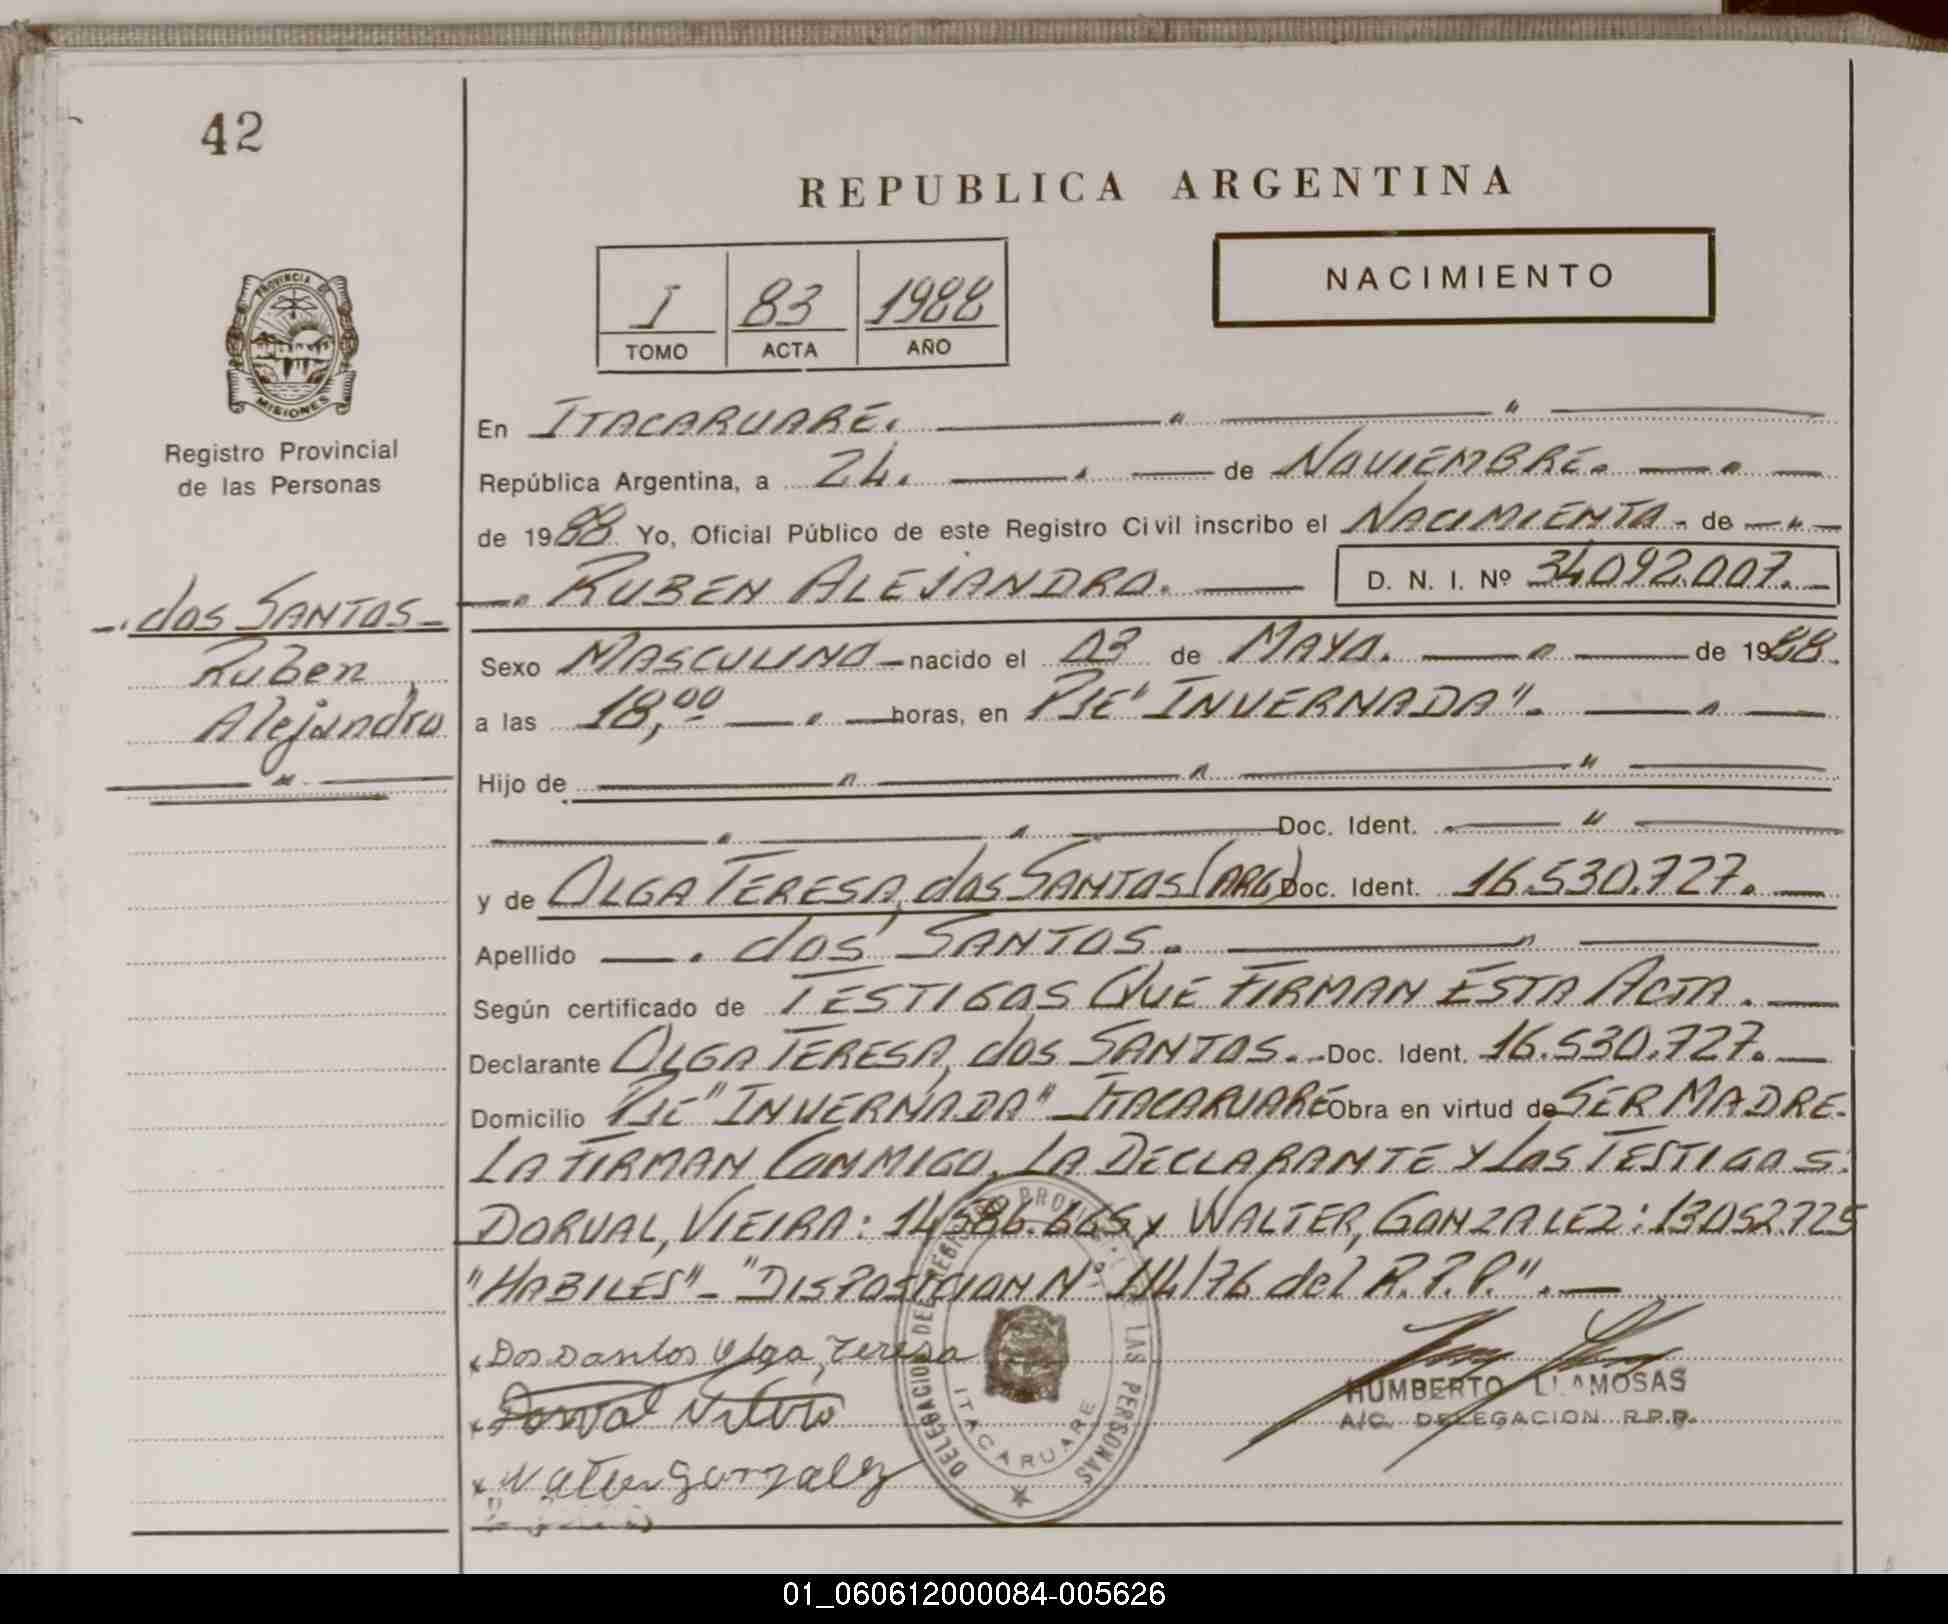 42
REPUBLICA ARGENTINA
NACIMIENTO
I 83 1988
TOMO ACTA AÑO
PROVINCIA DE
MISIONES
Registro Provincial
de las Personas
En ITACARUARÉ.
República Argentina, a 24. de NOVIEMBRE.
de 1988 Yo, Oficial Público de este Registro Civil inscribo el NACIMIENTO de
RUBEN ALEJANDRO. D. N. I. Nº 34092.007.
dos SANTOS
Ruben
Alejandro
Sexo MASCULINO nacido el 03 de MAYO. de 1988.
a las 18,00 horas, en PJE "INVERNADA".
Hijo de
Doc. Ident.
y de OLGA TERESA, dos SANTOS (ARG) Doc. Ident. 16.530.727.
Apellido dos SANTOS.
Según certificado de TESTIGOS QUE FIRMAN ESTA ACTA.
Declarante OLGA TERESA, dos SANTOS. Doc. Ident. 16.530.727.
Domicilio PJE "INVERNADA" ITACARUARÉ Obra en virtud de SER MADRE.
LA FIRMAN CONMIGO, LA DECLARANTE Y LOS TESTIGOS:
DORVAL, VIEIRA: 14.586.665 y WALTER, GONZALEZ: 13.052.725
"HABILES" - "DISPOSICION Nº 114/76 del R.P.P.".
x Dos Santos Olga, Teresa
x Dorval
x Walter Gonzalez
HUMBERTO LLAMOSAS
A/C. DELEGACION R.P.P.
DELEGACION DEL REGISTRO PROVINCIAL DE LAS PERSONAS
ITACARUARE
01_060612000084-005626